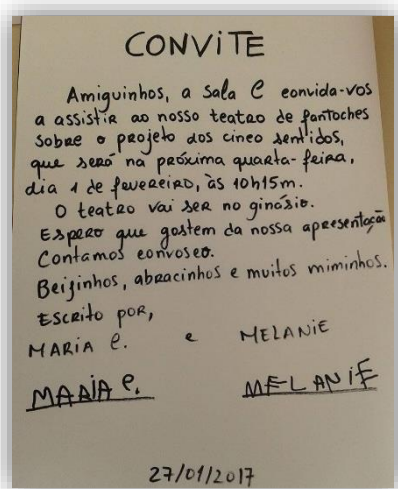 CONVITE
Amiguinhos, a sala C convida-vos
a assistir ao nosso teatro de fantoches
sobre o projeto dos cinco sentidos,
que será na próxima quarta-feira,
dia 1 de fevereiro, às 10h15m.
O teatro vai ser no ginásio.
Espero que gostem da nossa apresentação
Contamos convosco.
Beijinhos, abracinhos e muitos miminhos.
Escrito por,
MARIA C. e MELANIE
MARIA C. MELANIE
27/01/2017